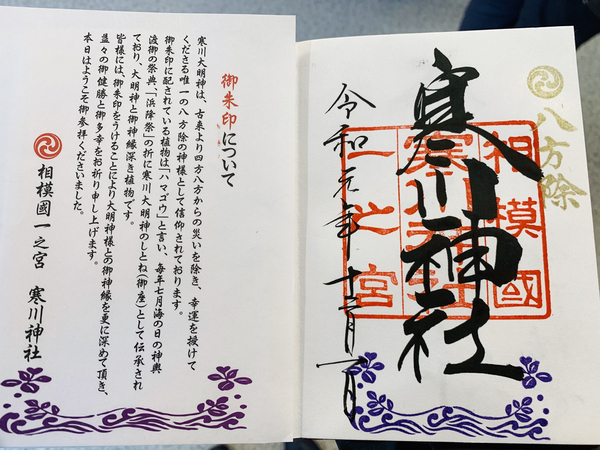 御朱印について
寒川大明神は、古来より四方八方からの災いを除き、幸運を授けて
くださる唯一の八方除の神様として信仰されております。
御朱印に配されている植物は「ハマゴウ」と言い、毎年七月海の日の神輿
渡御の祭典、「浜降祭」の折に寒川大明神のしとね(御座)として伝承され
ており、大明神と御神縁深き植物です。
皆様には、御朱印をうけることにより大明神様との御神縁を更に深めて頂き、
益々の御健勝と御多幸をお祈り申し上げます。
本日はようこそ御参拝くださいました。
相模國一之宮 寒川神社
八方除
相模國
一之宮
寒川神社
令和元年十二月一日